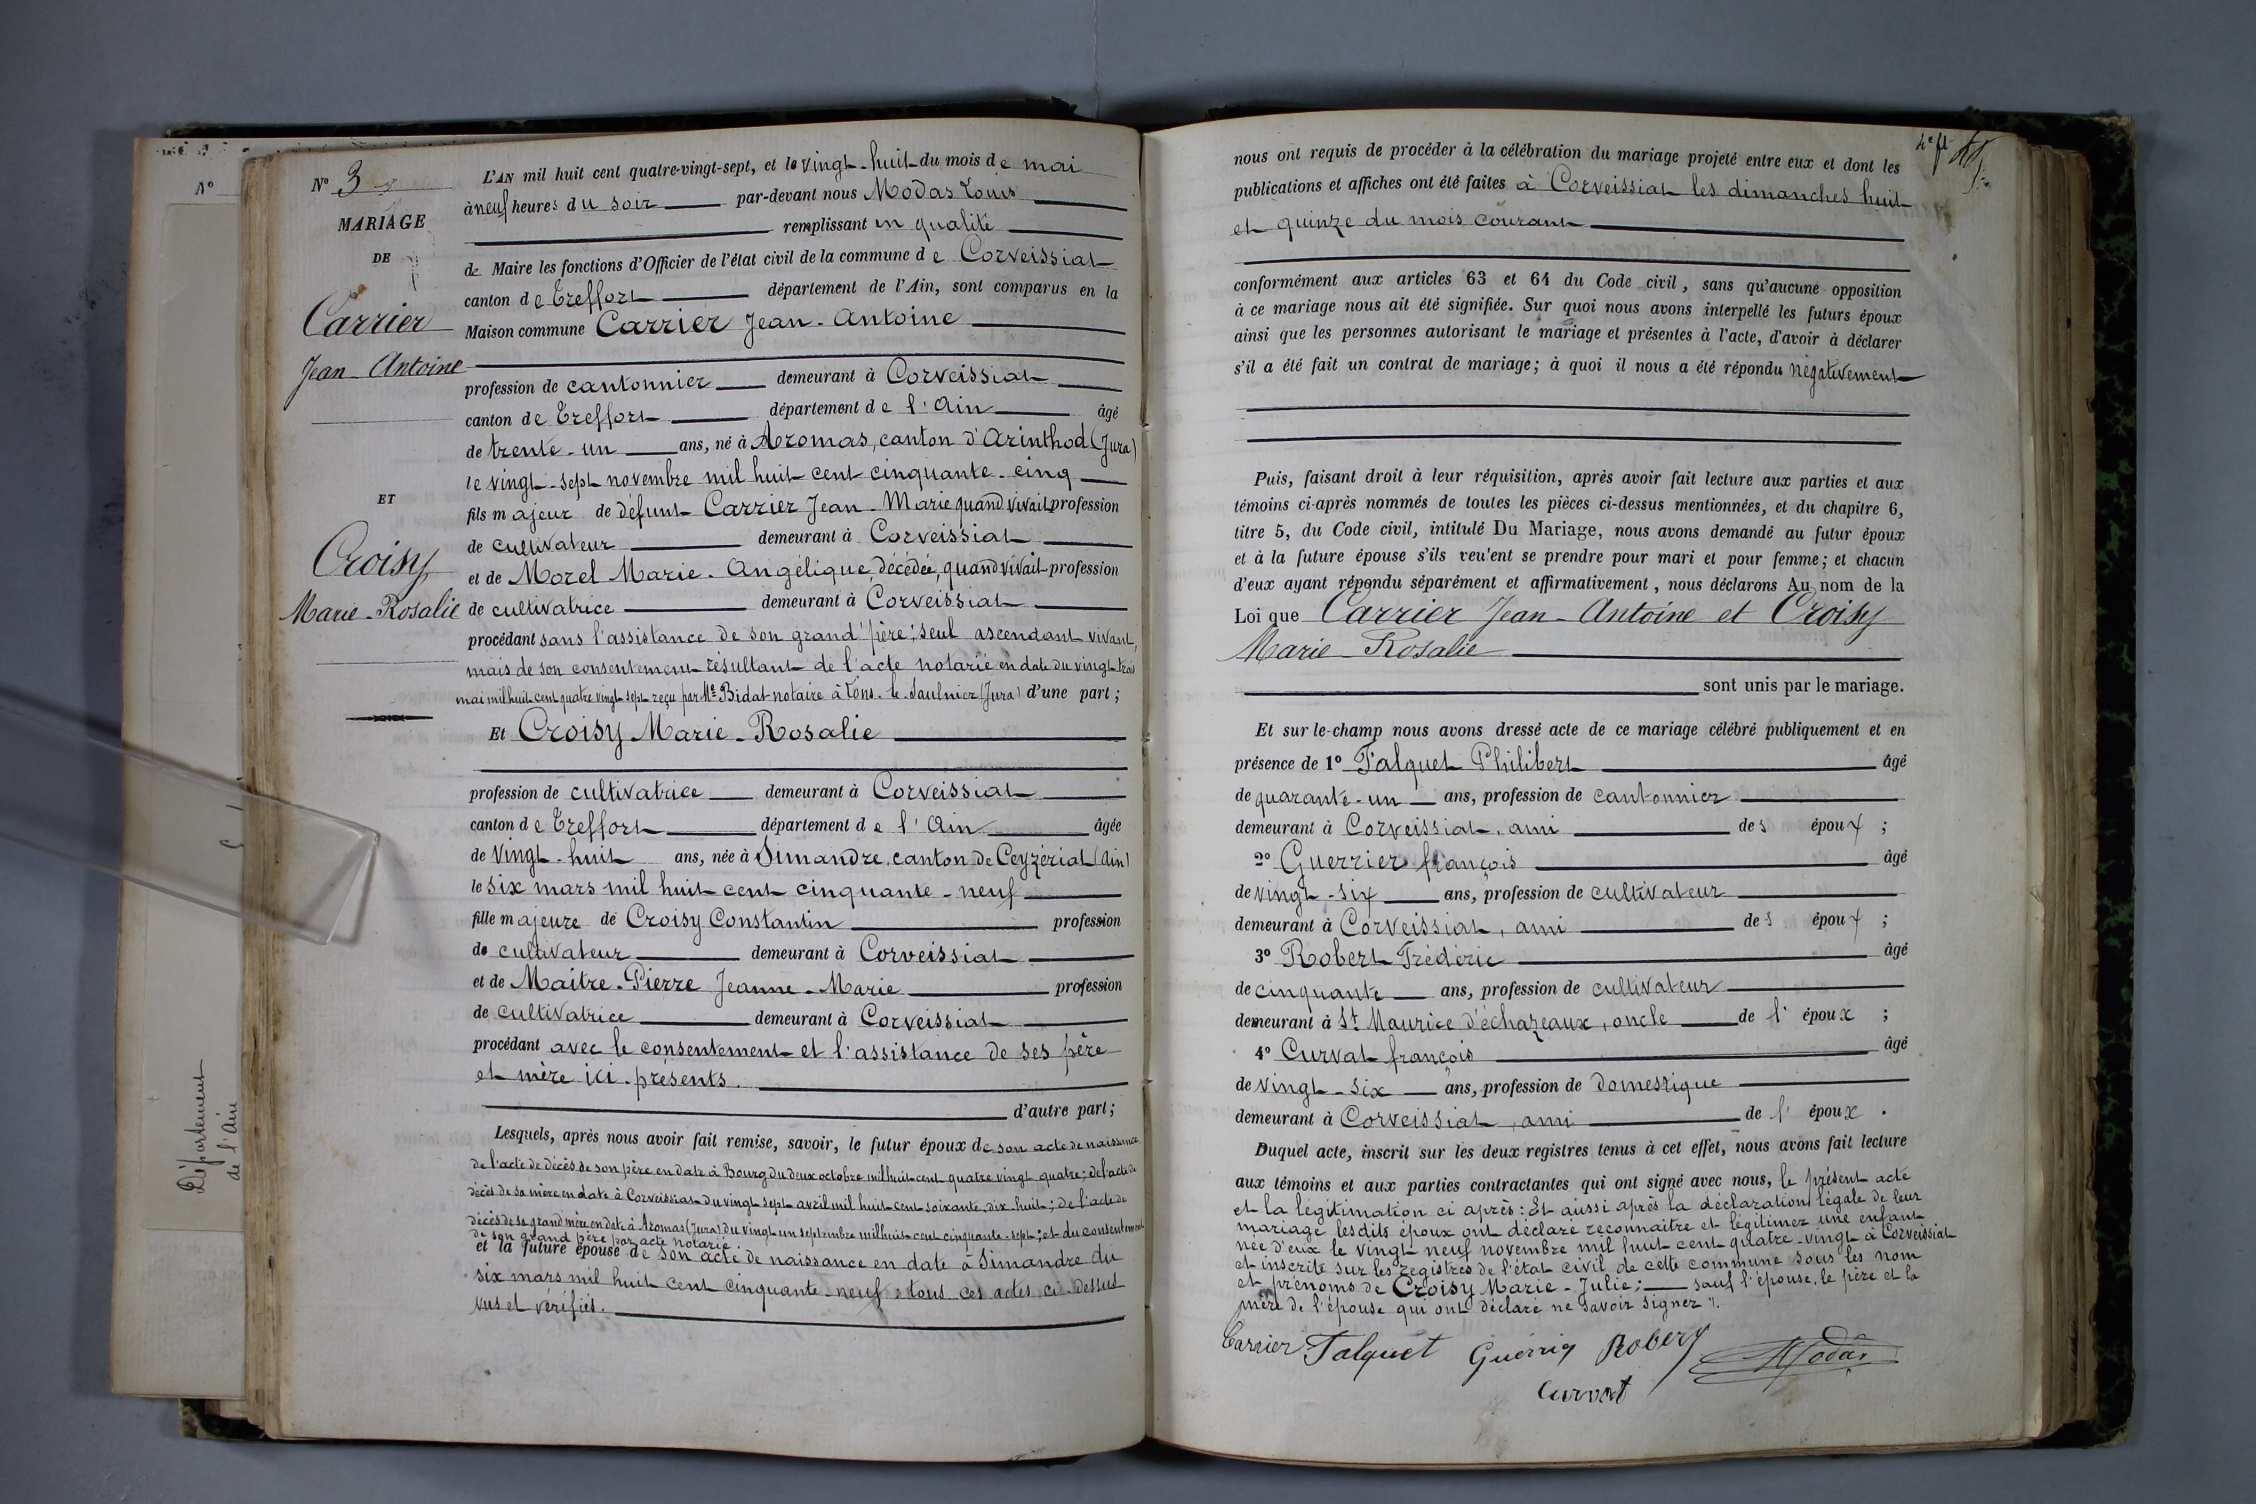 Nº
Département
de l'Ain
Nº 3
MARIAGE
DE
Carrier
Jean-Antoine
ET
Croisy
Marie-Rosalie
L'AN mil huit cent quatre-vingt-sept, et le vingt-huit du mois de mai
à neuf heures du soir par-devant nous Modas Louis
remplissant en qualité
de Maire les fonctions d'Officier de l'état civil de la commune de Corveissiat
canton de Treffort département de l'Ain, sont comparus en la
Maison commune Carrier Jean-Antoine
profession de cantonnier demeurant à Corveissiat
canton de Treffort département de l'Ain âgé
de trente-un ans, né à Aromas, canton d'Arinthod (Jura)
le vingt-sept novembre mil huit cent cinquante-cinq
fils majeur de défunt Carrier Jean-Marie quand vivait profession
de cultivateur demeurant à Corveissiat
et de Morel Marie-Angélique, décédée, quand vivait profession
de cultivatrice demeurant à Corveissiat
procédant sans l'assistance de son grand'père; seul ascendant vivant,
mais de son consentement résultant de l'acte notarié en date du vingt-trois
mai mil huit cent quatre vingt sept reçu par Me Bidat notaire à Lons-le-Saulnier (Jura) d'une part;
Et Croisy Marie-Rosalie
profession de cultivatrice demeurant à Corveissiat
canton de Treffort département de l'Ain âgée
de vingt-huit ans, née à Simandre, canton de Ceyzériat (Ain)
le six mars mil huit cent cinquante-neuf
fille majeure de Croisy Constantin profession
de cultivateur demeurant à Corveissiat
et de Maitre-Pierre Jeanne-Marie profession
de cultivatrice demeurant à Corveissiat
procédant avec le consentement et l'assistance de ses père
et mère ici présents.
d'autre part;
Lesquels, après nous avoir fait remise, savoir, le futur époux de son acte de naissance
de l'acte de décès de son père en date à Bourg du deux octobre mil huit cent quatre vingt quatre; de l'acte de
décès de sa mère en date à Corveissiat du vingt sept avril mil huit cent soixante dix-huit; de l'acte de
décès de sa grand'mère en date à Aromas (Jura) du vingt un septembre mil huit cent cinquante-sept; et du consentement
de son grand père par acte notarié.
et la future épouse de son acte de naissance en date à Simandre du
six mars mil huit cent cinquante neuf; tous ces actes ci-dessus
vus et vérifiés.
nous ont requis de procéder à la célébration du mariage projeté entre eux et dont les
publications et affiches ont été faites à Corveissiat les dimanches huit
et quinze du mois courant
conformément aux articles 63 et 64 du Code civil, sans qu'aucune opposition
à ce mariage nous ait été signifiée. Sur quoi nous avons interpellé les futurs époux
ainsi que les personnes autorisant le mariage et présentes à l'acte, d'avoir à déclarer
s'il a été fait un contrat de mariage; à quoi il nous a été répondu négativement
Puis, faisant droit à leur réquisition, après avoir fait lecture aux parties et aux
témoins ci-après nommés de toutes les pièces ci-dessus mentionnées, et du chapitre 6,
titre 5, du Code civil, intitulé Du Mariage, nous avons demandé au futur époux
et à la future épouse s'ils veulent se prendre pour mari et pour femme; et chacun
d'eux ayant répondu séparément et affirmativement, nous déclarons Au nom de la
Loi que Carrier Jean-Antoine et Croisy
Marie-Rosalie
sont unis par le mariage.
Et sur-le-champ nous avons dressé acte de ce mariage célébré publiquement et en
présence de 1º Falquet Philibert âgé
de quarante-un ans, profession de cantonnier
demeurant à Corveissiat, ami des époux;
2º Guerrier françois âgé
de vingt-six ans, profession de cultivateur
demeurant à Corveissiat, ami des époux;
3º Robert Frédéric âgé
de cinquante ans, profession de cultivateur
demeurant à St Maurice d'échazeaux, oncle de l'époux;
4º Curvat françois âgé
de vingt-six ans, profession de domestique
demeurant à Corveissiat, ami de l'époux.
Duquel acte, inscrit sur les deux registres tenus à cet effet, nous avons fait lecture
aux témoins et aux parties contractantes qui ont signé avec nous, le présent acte
et la légitimation ci après: Et aussi après la déclaration légale de leur
mariage lesdits époux ont déclaré reconnaitre et légitimer une enfant
née d'eux le vingt neuf novembre mil huit cent quatre-vingt à Corveissiat
et inscrite sur les registres de l'état civil de cette commune sous les nom
et prénoms de Croisy Marie-Julie; sauf l'épouse, le père et la
mère de l'épouse qui ont déclaré ne savoir signer.
Carrier Falquet Guerrier Robert Modas
Curvat